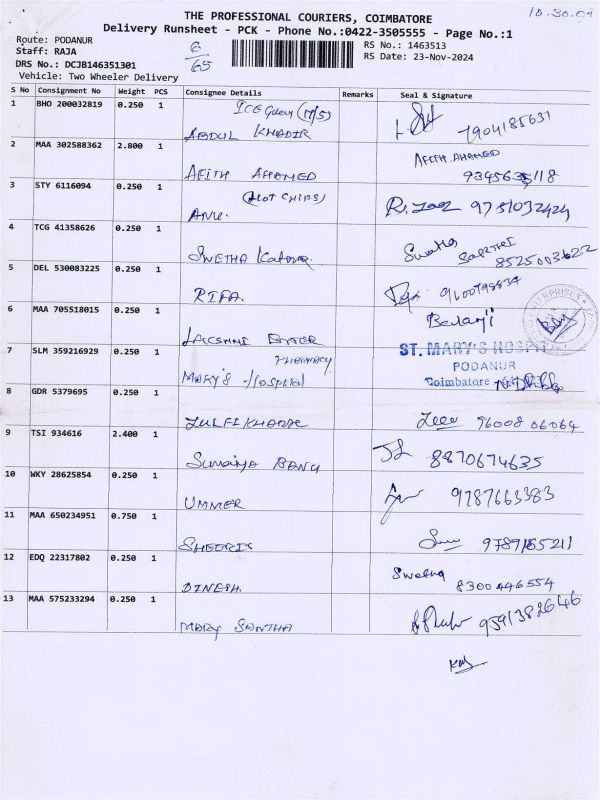 THE PROFESSIONAL COURIERS, COIMBATORE
10.30.04
Delivery Runsheet - PCK - Phone No.:0422-3505555 - Page No.:1
Route: PODANUR
6
65
RS No.: 1463513
Staff: RAJA
RS Date: 23-Nov-2024
DRS No.: DCJB146351301
Vehicle: Two Wheeler Delivery
S No Consignment No Weight PCS Consignee Details Remarks Seal & Signature
1 BHO 200032819 0.250 1
ABDUL KHADIR 7904185631
2 MAA 302588362 2.800 1 AFITH AHAMED
AFITH AHAMED 9345635118
3 STY 6116094 0.250 1 (HOT CHIPS)
ANU. 9751032424
4 TCG 41358626 0.250 1 Swetha
SWETHA 8525003622
5 DEL 530083225 0.250 1
RIFA. 9600798834
6 MAA 705518015 0.250 1 Balaji
LAKSHMI
7 SLM 359216929 0.250 1 PHARMACY ST. MARY'S HOSPITAL
PODANUR
MARY'S Hospital Coimbatore
8 GDR 5379695 0.250 1
96008 06064
9 TSI 934616 2.400 1
Sumaiya BANU 8870674635
10 WKY 28625854 0.250 1
UMMER 9787663383
11 MAA 650234951 0.750 1
9789165211
12 EDQ 22317802 0.250 1 Swetha
DINESH. 8300446554
13 MAA 575233294 0.250 1
MARY SANTHA 9591382646